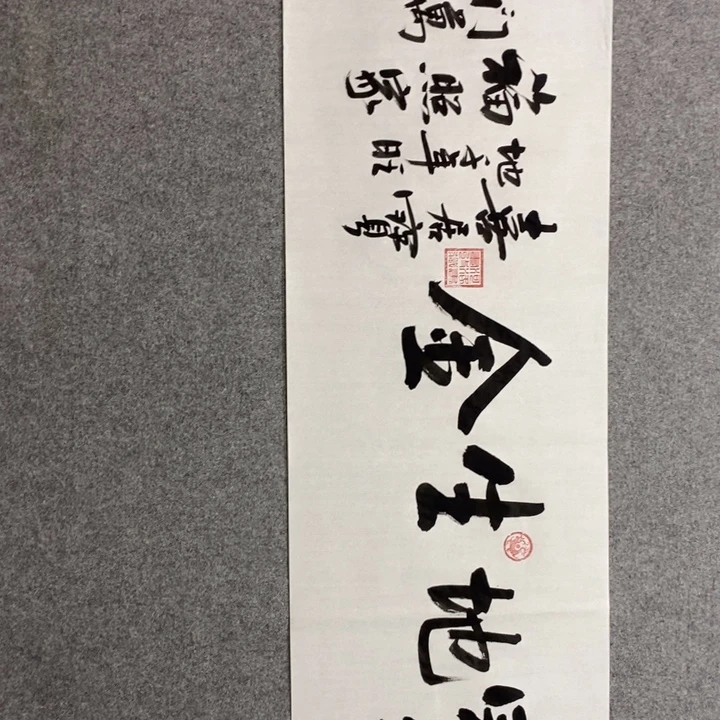 地生金
喜居寶
地千年旺
福照家
门萬